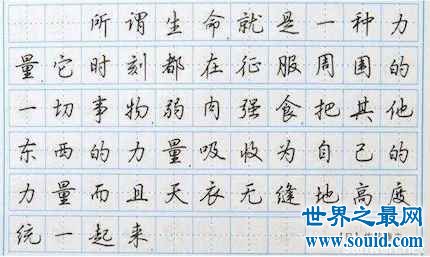 所谓生命就是一种力
量它时刻都在征服周围的
一切事物弱肉强食把其他
东西的力量吸收为自己的
力量而且天衣无缝地高度
统一起来
世界之最网
www.souid.com